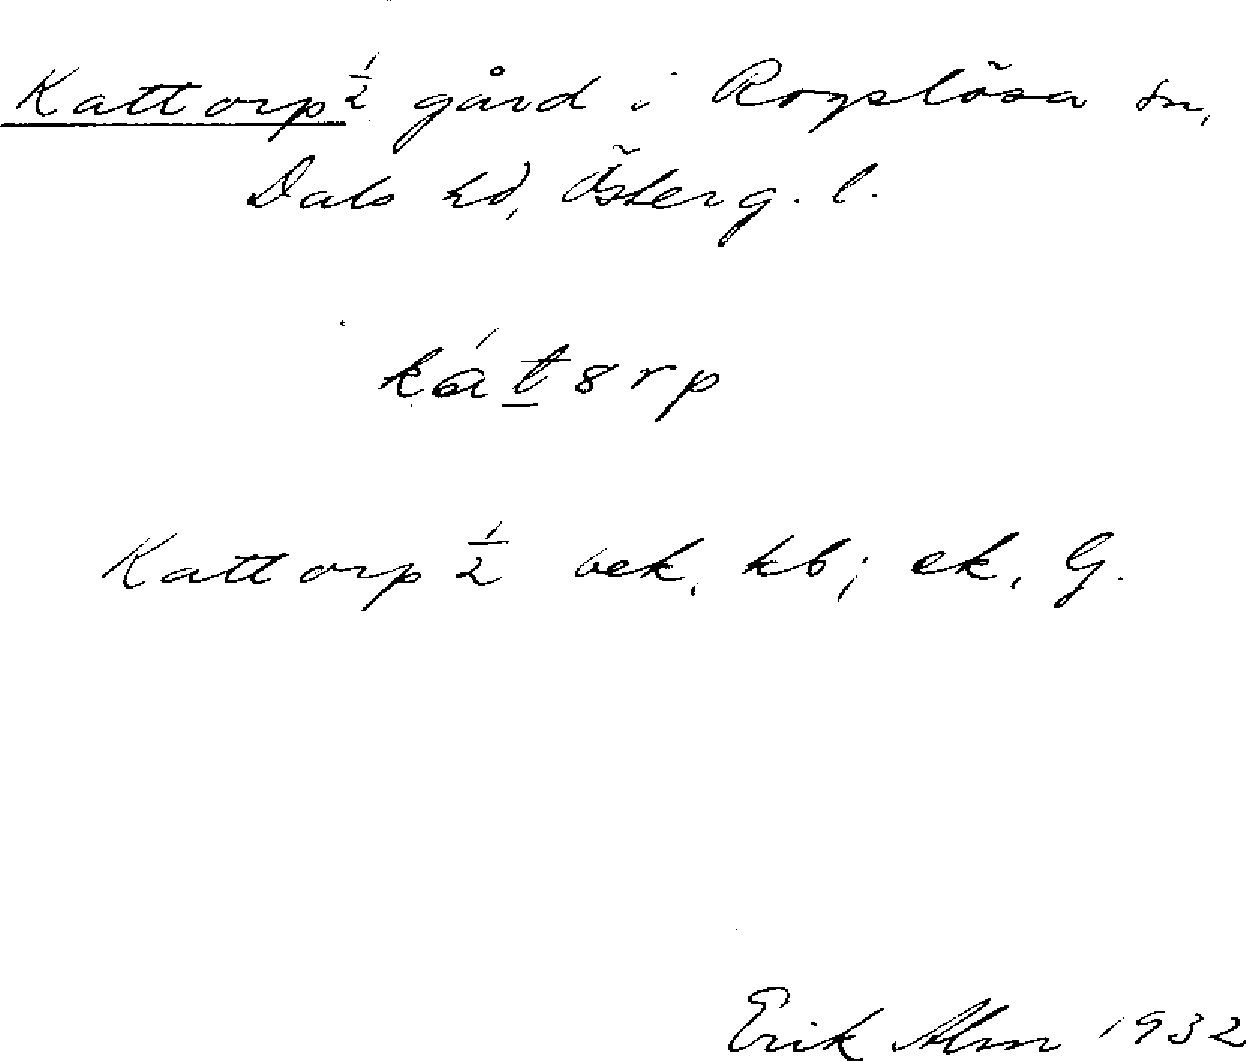 Kattorp ½ gård i Rogslösa sn,
Dals hd, Österg. l.
kát8rp
Kattorp ½ bek. kb; ek. G.
Erik Alm 1932